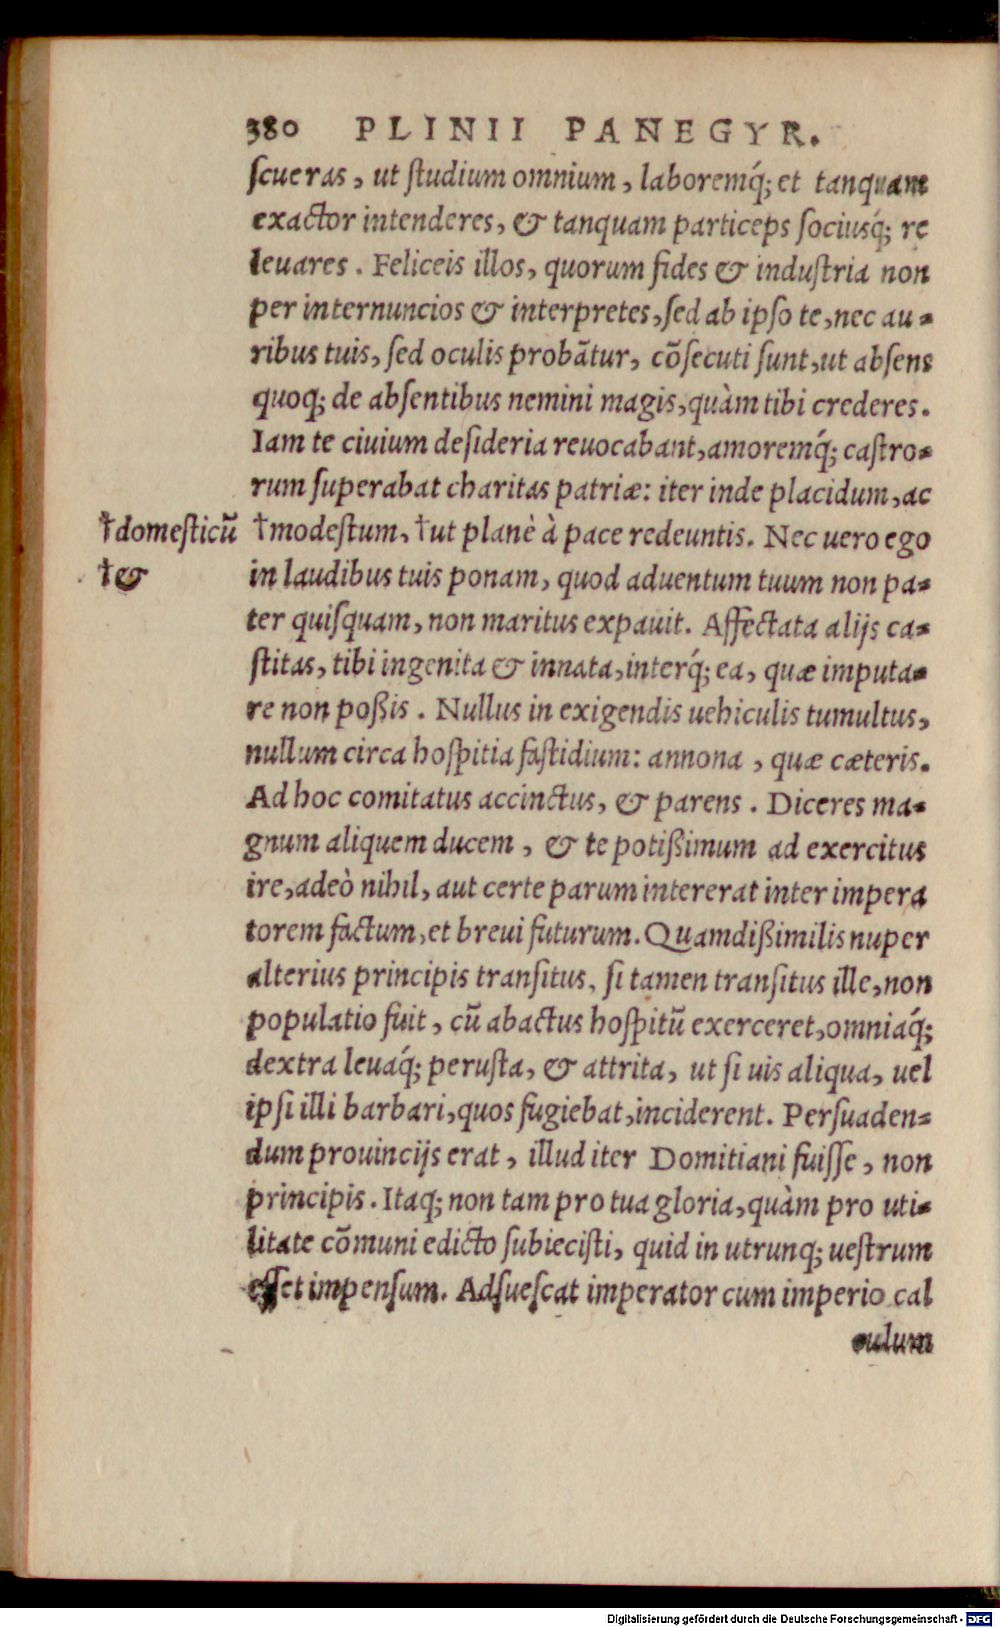 380 PLINII PANEGYR.
ſcueras, ut ſtudium omnium, laboremq́; et tanquam
exactor intenderes, & tanquam particeps ſociusq́; re
leuares. Feliceis illos, quorum fides & induſtria non
per internuncios & interpretes, ſed ab ipſo te, nec au-
ribus tuis, ſed oculis probātur, cōſecuti ſunt, ut abſens
quoq; de abſentibus nemini magis, quàm tibi crederes.
Iam te ciuium deſideria reuocabant, amoremq́; caſtro-
rum ſuperabat charitas patriæ: iter inde placidum, ac
†domeſticū †modeſtum, †ut planè à pace redeuntis. Nec uero ego
†& in laudibus tuis ponam, quod aduentum tuum non pa-
ter quiſquam, non maritus expauit. Affectata alijs ca-
ſtitas, tibi ingenita & innata, interq́; ea, quæ imputa-
re non poßis. Nullus in exigendis uehiculis tumultus,
nullum circa hoſpitia faſtidium: annona, quæ cæteris.
Ad hoc comitatus accinctus, & parens. Diceres ma-
gnum aliquem ducem, & te potißimum ad exercitus
ire, adeò nihil, aut certe parum intererat inter impera
torem factum, et breui futurum. Quamdißimilis nuper
alterius principis tranſitus, ſi tamen tranſitus ille, non
populatio fuit, cū abactus hoſpitū exerceret, omniaq́;
dextra leuaq́; peruſta, & attrita, ut ſi uis aliqua, uel
ipſi illi barbari, quos fugiebat, inciderent. Perſuaden-
dum prouincijs erat, illud iter Domitiani fuiſſe, non
principis. Itaq; non tam pro tua gloria, quàm pro uti-
litate cōmuni edicto ſubieciſti, quid in utrunq; ueſtrum
eſſet impenſum. Adſueſcat imperator cum imperio cal
culum
Digitalisierung gefördert durch die Deutsche Forschungsgemeinschaft - DFG